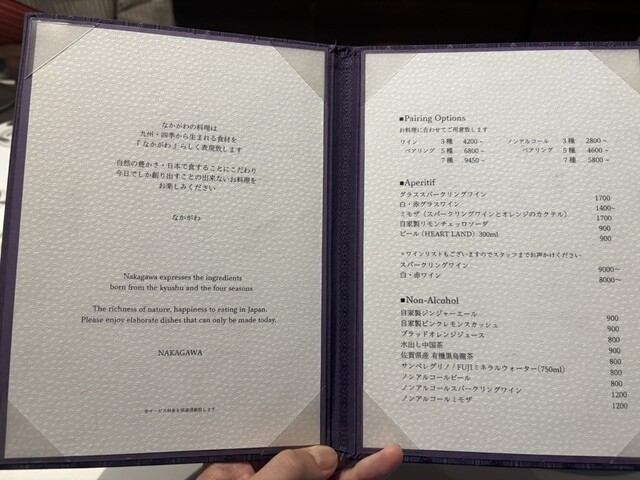 なかがわの料理は
九州・四季から生まれる食材を
『なかがわ』らしく表現致します
自然の豊かさ・日本で食することにこだわり
今日でしか創り出すことの出来ないお料理を
お楽しみください
なかがわ
Nakagawa expresses the ingredients
born from the kyushu and the four seasons
The richness of nature, happiness to eating in Japan.
Please enjoy elaborate dishes that can only be made today.
NAKAGAWA
■Pairing Options
お料理に合わせてご用意致します
ワイン 3種 4200~ ノンアルコール 3種 2800~
ペアリング 5種 6800~ ペアリング 5種 4600~
7種 9450~ 7種 5800~
■Aperitif
グラススパークリングワイン 1700
白・赤グラスワイン 1400~
ミモザ（スパークリングワインとオレンジのカクテル） 1700
自家製リモンチェッロソーダ 900
ビール（HEART LAND）300ml 900
＊ワインリストもございますのでスタッフまでお声がけください
スパークリングワイン 9000~
白・赤ワイン 8000~
■Non-Alcohol
自家製ジンジャーエール 900
自家製ピンクレモンスカッシュ 900
ブラッドオレンジジュース 800
水出し中国茶 900
佐賀県産 有機黒烏龍茶 800
サンペレグリノ / FUJIミネラルウォーター(750ml) 800
ノンアルコールビール 800
ノンアルコールスパークリングワイン 1200
ノンアルコールミモザ 1200